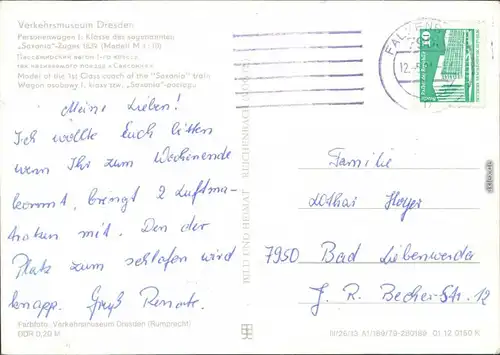 Verkehrsmuseum Dresden
Personenwagen I. Klasse des sogenannten
„Saxonia"-Zuges 1839 (Modell M 1 : 10)
Пассажирский вагон I-го класса
так называемого поезда «Саксония»
Model of the 1st Class coach of the "Saxonia" train
Wagon osobowy I. klasy tzw. „Saxonia"-pociągu
Meine Lieben!
Ich wollte Euch bitten
wenn Ihr zum Wochenende
kommt, bringt 2 Luftma-
tratzen mit. Den der
Platz zum schlafen wird
knapp. Gruß Renate.
Farbfoto: Verkehrsmuseum Dresden (Rumprecht)
DDR 0,20 M
BILD UND HEIMAT REICHENBACH
10
DDR
Familie
Lothar Hoyer
7950 Bad Liebenwerda
J. R. Becher-Str. 12
III/26/13 A1/189/79-280189 01 12 0160 K